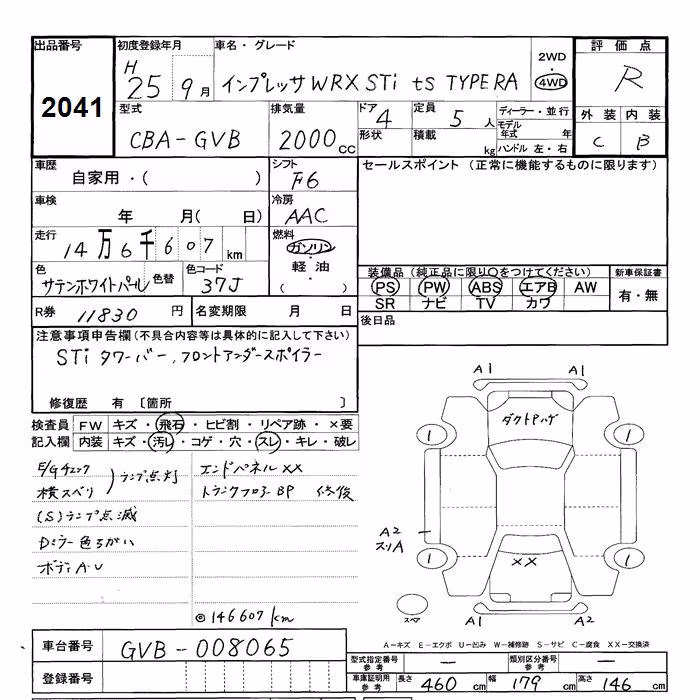 出品番号 初度登録年月 車名・グレード 2WD ・ 4WD 評価点
2041 H 25 9月 インプレッサ WRX STi tS TYPE RA R
型式 排気量 ドア 定員 ディーラー・並行 外装 内装
CBA-GVB 2000cc 4 5人 モデル年式 年 C B
形状 積載 kg ハンドル 左・右
車歴 シフト セールスポイント (正常に機能するものに限ります)
自家用・( ) F6
車検 冷房
年 月( 日) AAC
走行 燃料
14万6千607km ガソリン・軽油・( )
色 色替 色コード 装備品 (純正品に限り○をつけてください) 新車保証書
サテンホワイトパール 37J PS PW ABS エアB AW 有・無
SR ナビ TV カワ
R券 11830円 名変期限 月 日 後日品
注意事項申告欄 (不具合内容等は具体的に記入して下さい)
STi タワーバー、フロントアンダースポイラー
修復歴 有 〔箇所 〕
検査員 FW キズ・飛石・ヒビ割・リペア跡・×要
記入欄 内装 キズ・汚レ・コゲ・穴・スレ・キレ・破レ
E/Gチェック エンドパネルXX
横スベリ )ランプ点灯 トランクフロアーBP 修復
(S)ランプ点滅
Dミラー色ちがい
ボディA・U
◎146607km
A1 A1
ダクトPハゲ
1 1
A2
スリA
1 XX 1
スペア A1 A2
A-キズ E-エクボ U-凹み W-補修跡 S-サビ C-腐食 XX-交換済
車台番号 GVB-008065
登録番号
型式指定番号 参考 — 類別区分番号 参考 —
車庫証明用 参考 長さ 460cm 幅 179cm 高さ 146cm